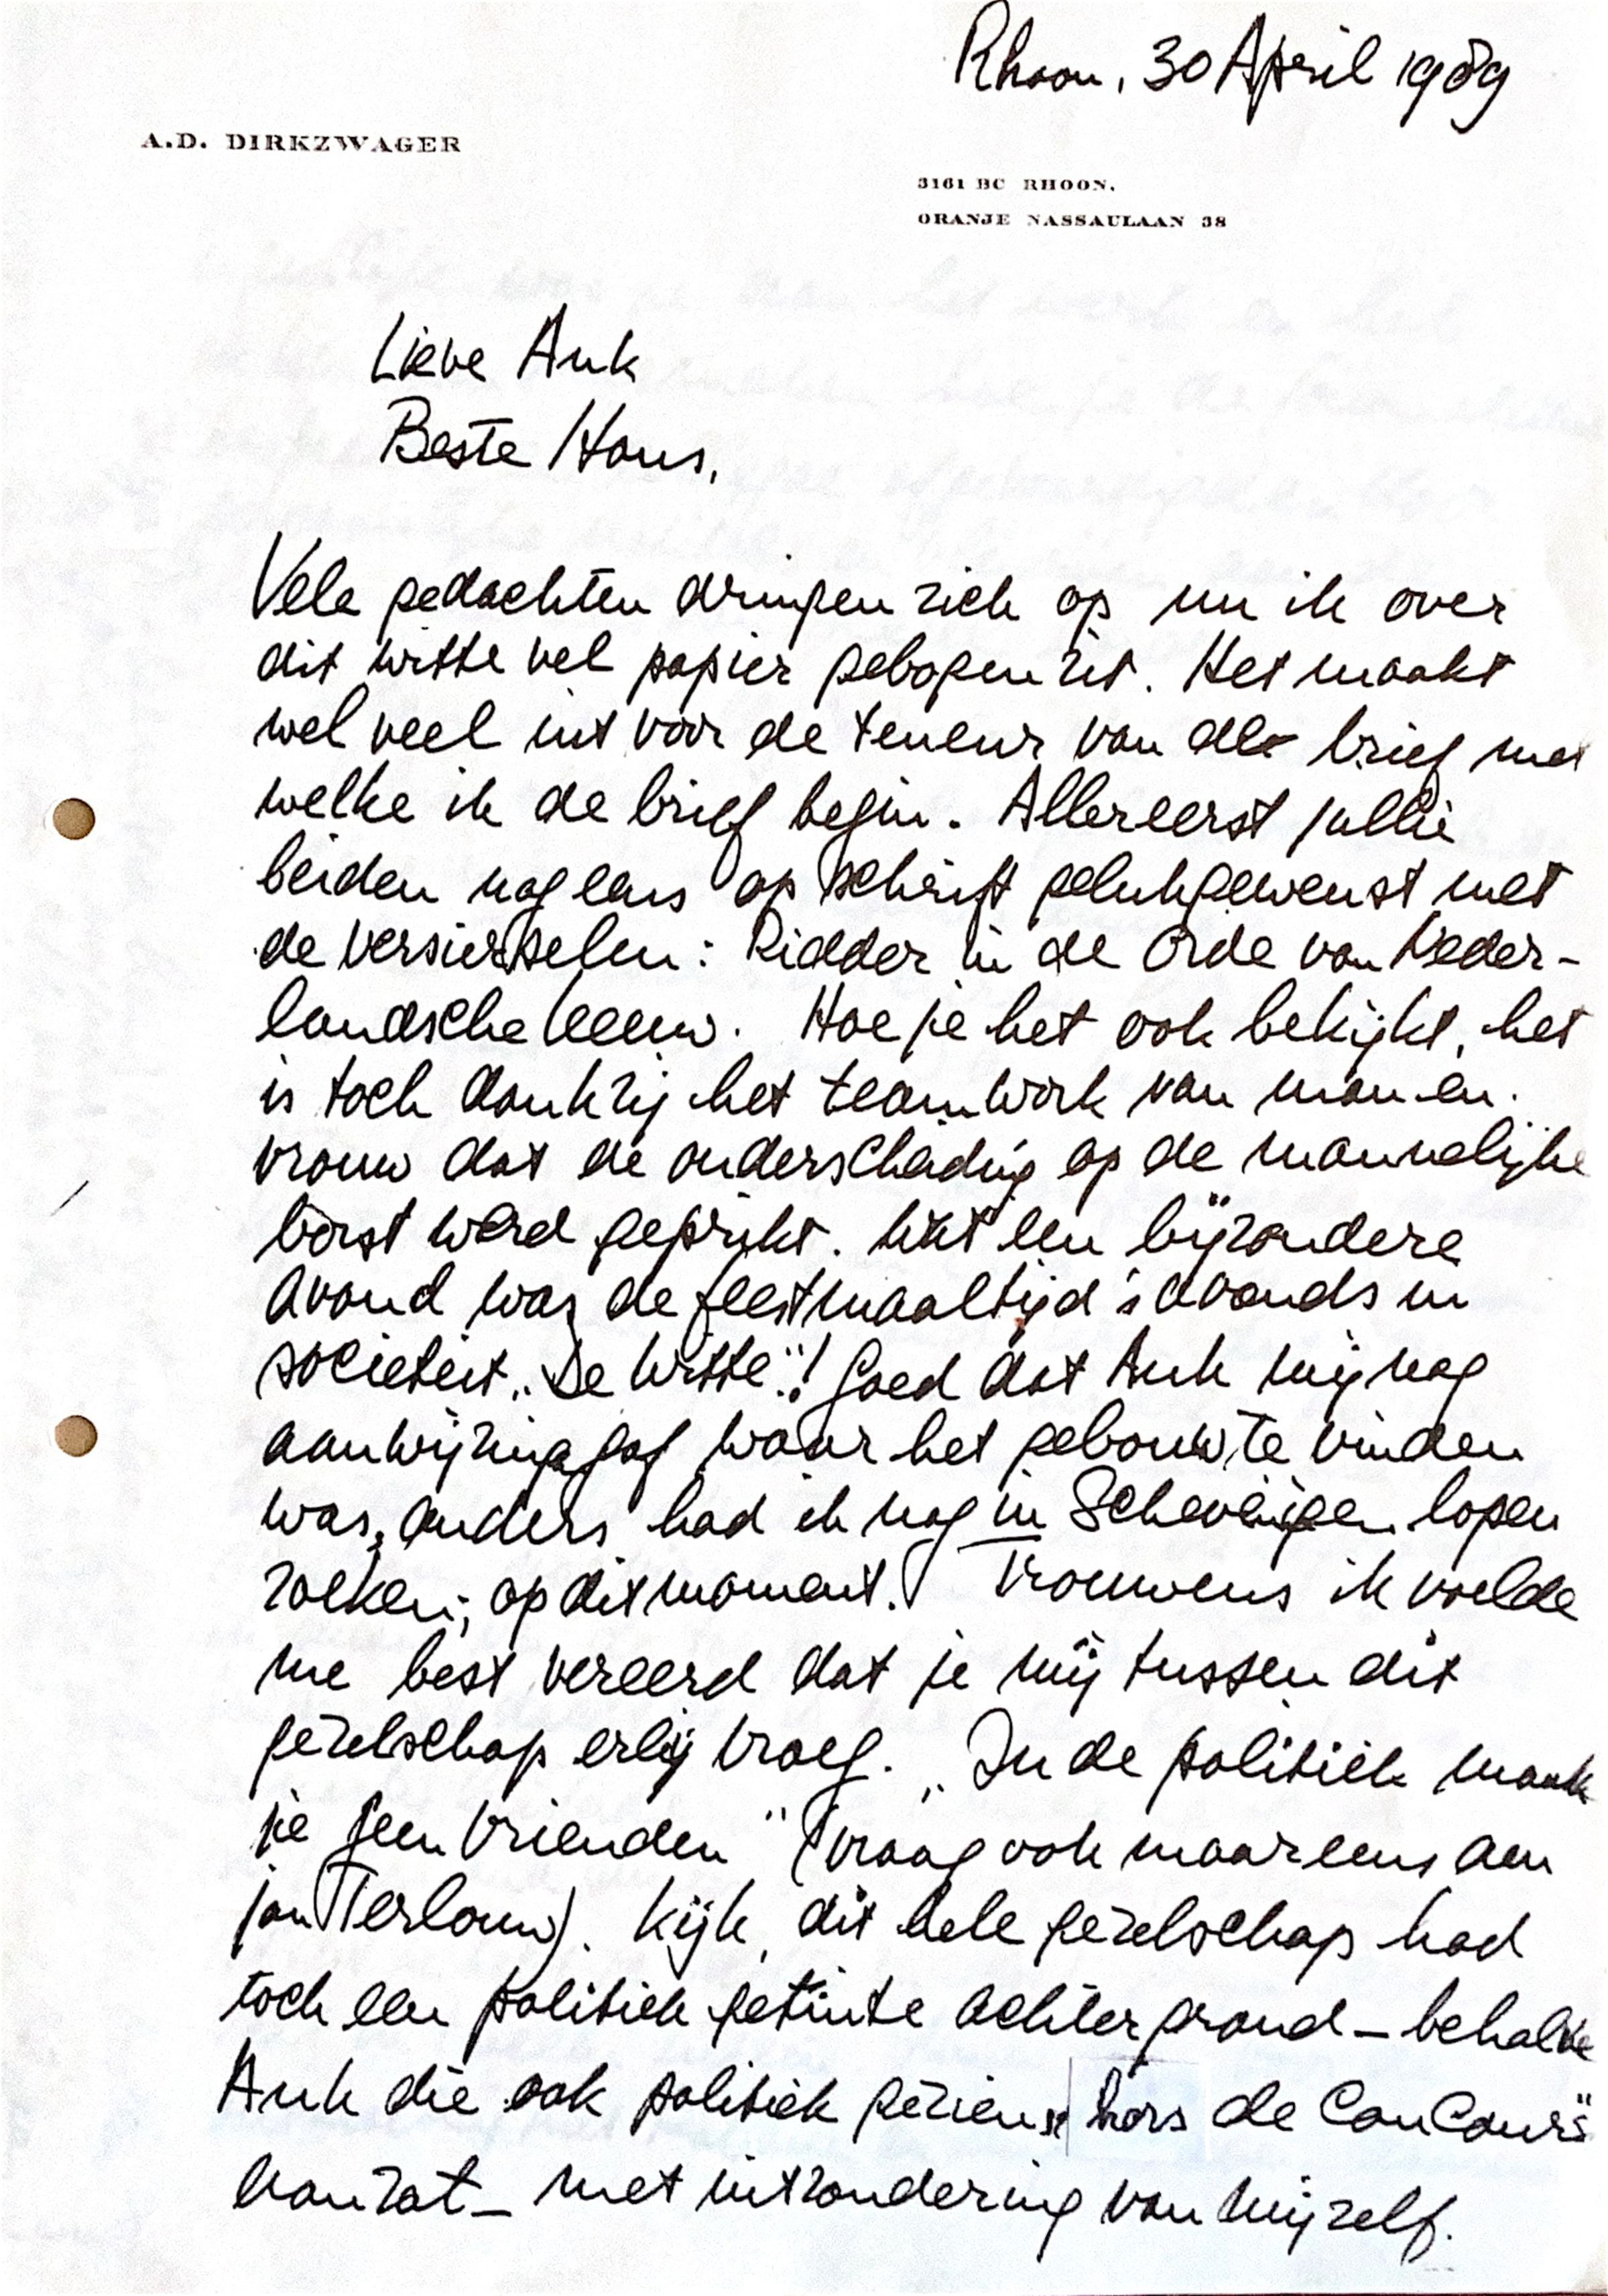 Rhoon, 30 April 1989
A.D. DIRKZWAGER
3161 BC RHOON.
ORANJE NASSAULAAN 38
Lieve Auk
Beste Hans,
Vele gedachten dringen zich op nu ik over
dit witte vel papier gebogen zit. Het maakt
wel veel uit voor de teneur van de brief met
welke ik de brief begin. Allereerst jullie
beiden nog eens op schrift gelukgewenst met
de versierselen: Ridder in de Orde van Neder-
landsche Leeuw. Hoe je het ook bekijkt, het
is toch dankzij het teamwork van man en
vrouw dat de onderscheiding op de mannelijke
borst werd geprikt. Wat een bijzondere
avond was de feestmaaltijd 's avonds in
societeit „De Witte"! Goed dat Auk mij nog
aanwijzing gaf waar het gebouw te vinden
was, anders had ik nog in Scheveningen lopen
zoeken, op dit moment. Trouwens ik voelde
me best vereerd dat je mij tussen dit
gezelschap erbij vroeg. „In de politiek maak
je geen vrienden" (vraag ook maar eens aan
Jan Terlouw). Kijk, dit hele gezelschap had
toch een politiek getinte achtergrond – behalve
Auk die ook politiek gezien „hors de Concours"
aanzat – met uitzondering van mijzelf.